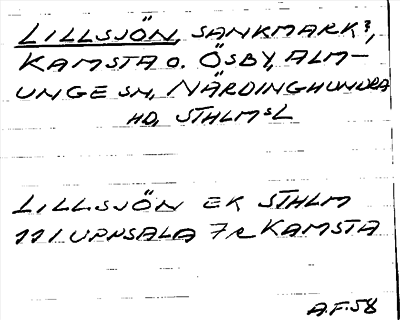 LILLSJÖN, SANKMARK?,
KAMSTA O. ÖSBY, ALM-
UNGE SN, NÄRDINGHUNDRA
HD, STHLMS L
LILLSJÖN EK STHLM
111 UPPSALA 7R KAMSTA
A.F. 58